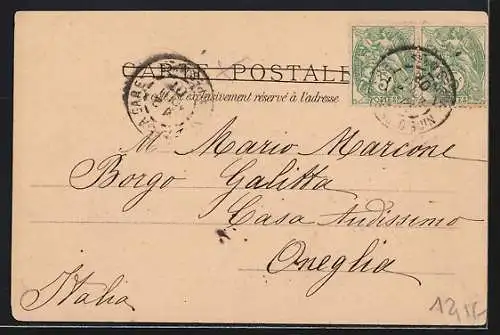 CARTE POSTALE
exclusivement réservé à l'adresse
M Mario Marcone
Borgo Galitta
Casa Audissimo
Oneglia
Italia